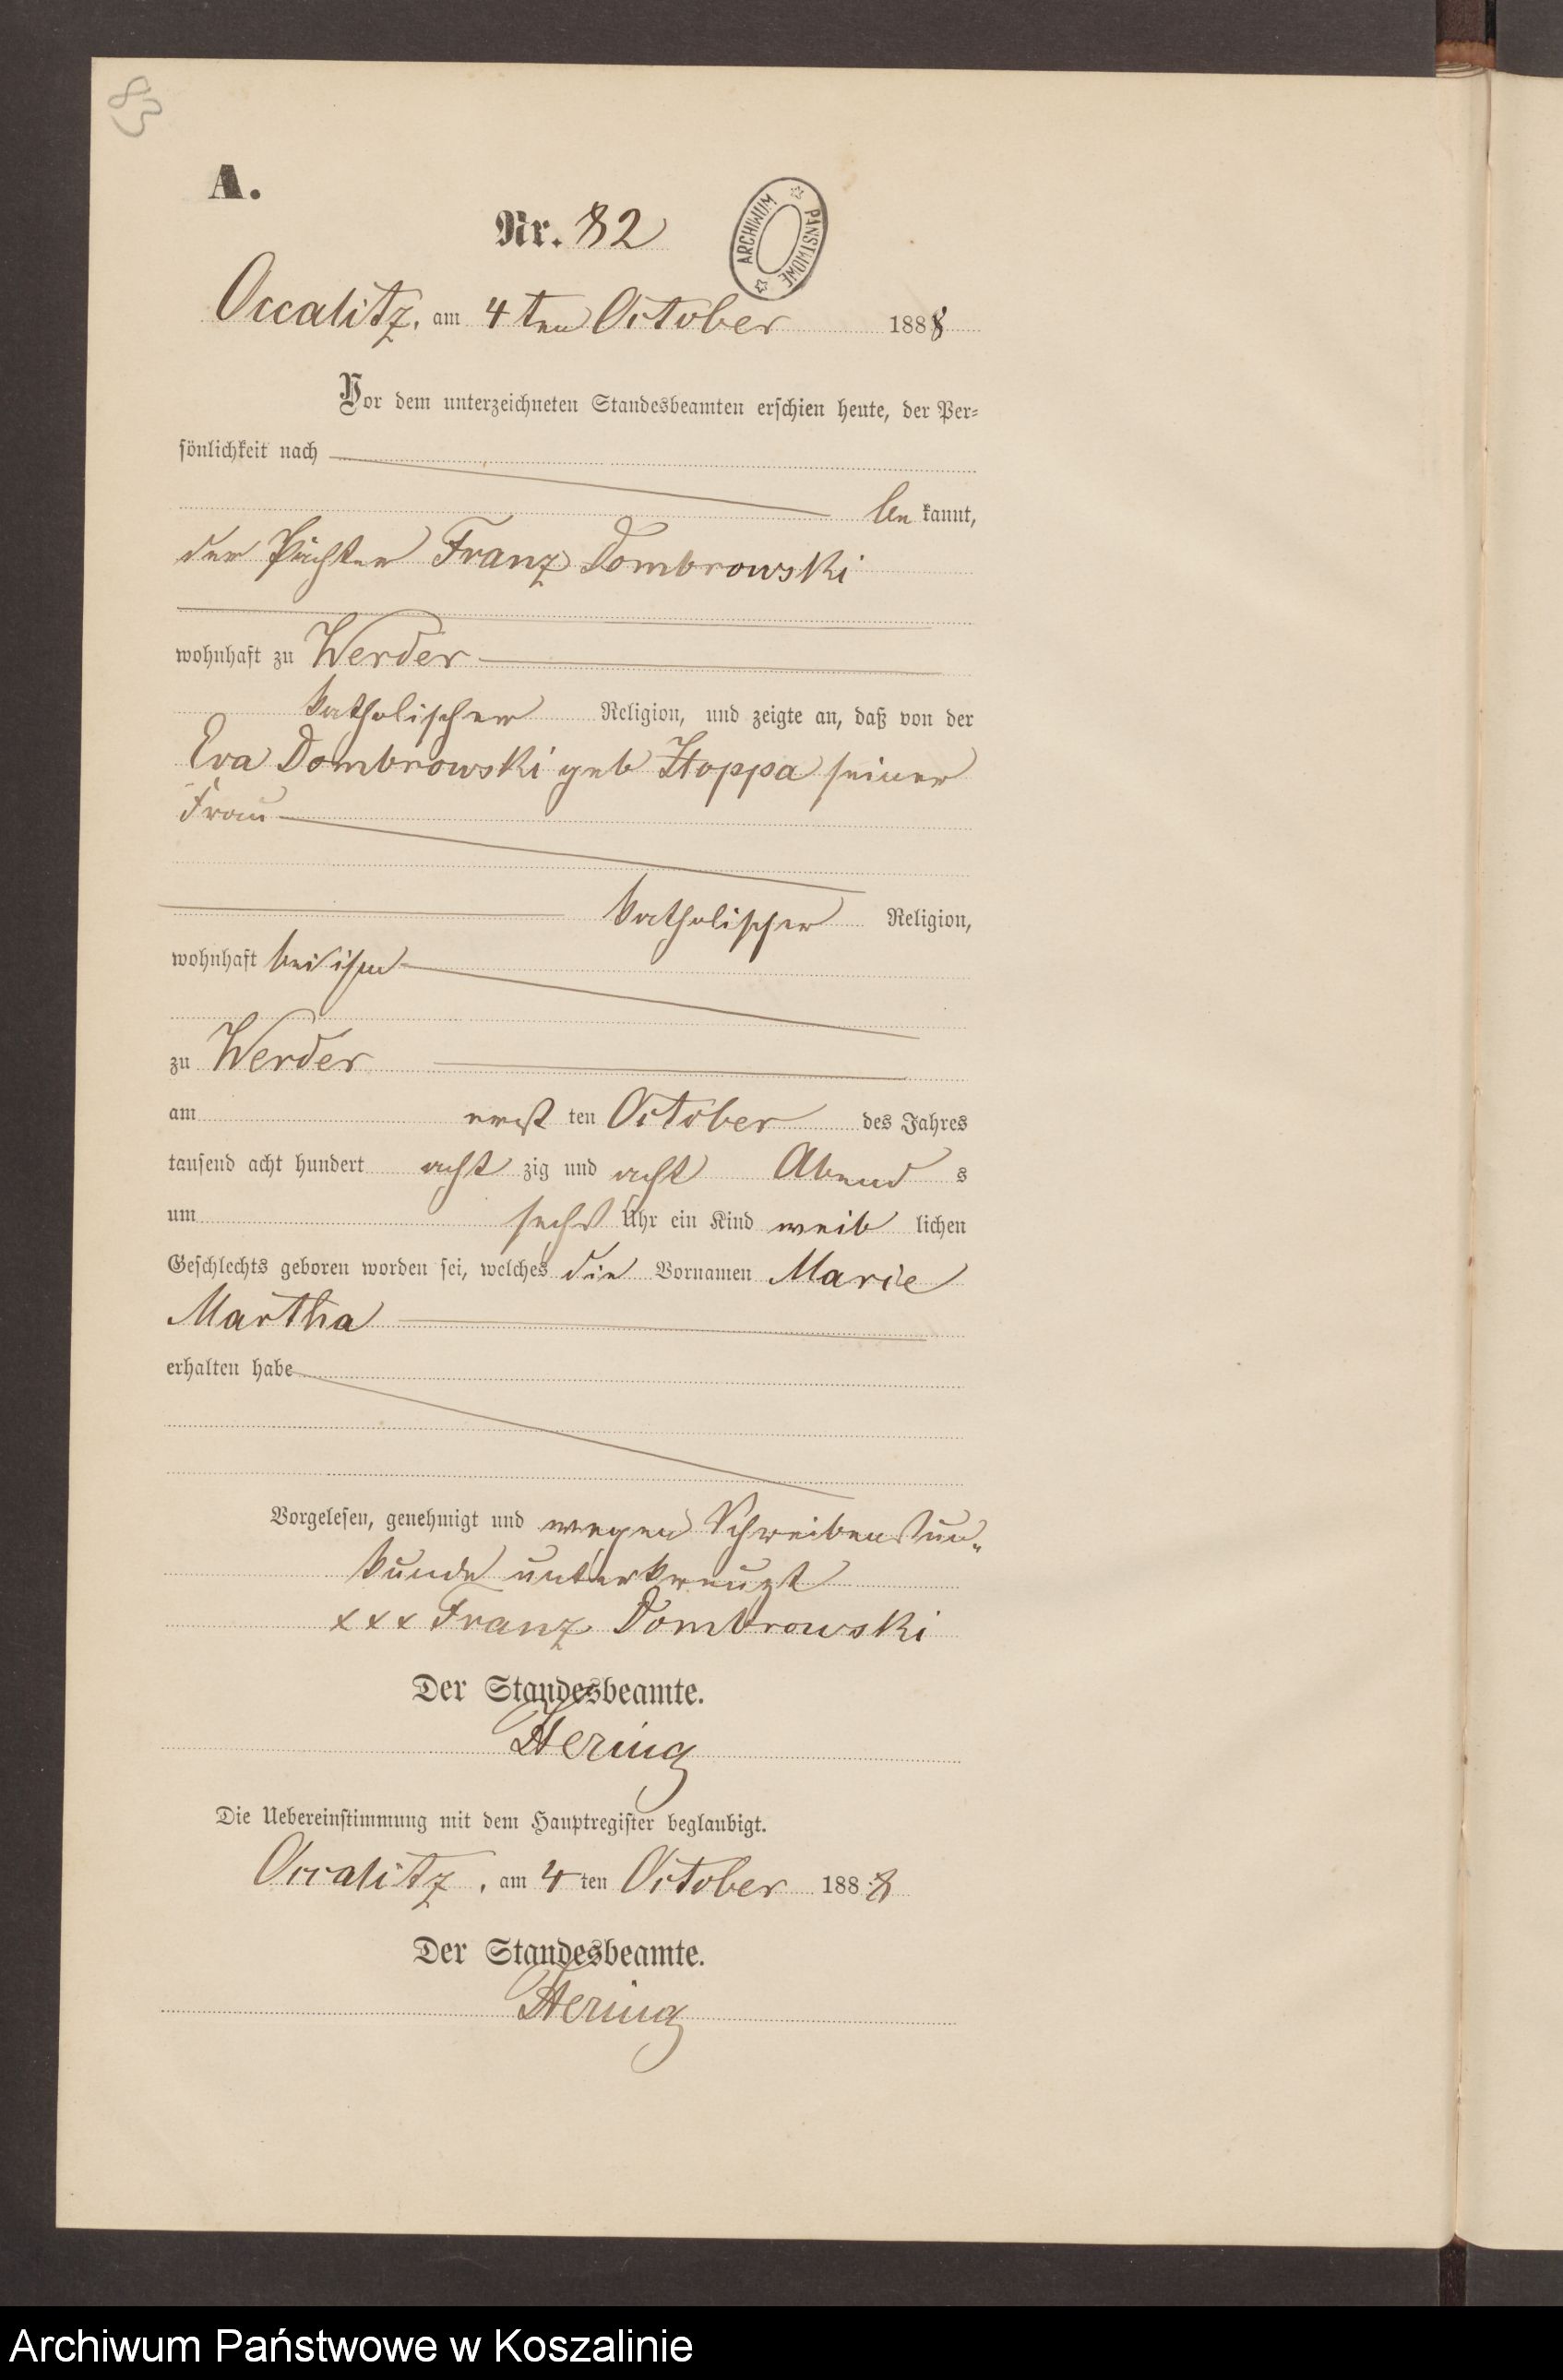 83
A.
Nr. 82
ARCHIWUM PAŃSTWOWE
Occalitz, am 4 ten October 1888
Vor dem unterzeichneten Standesbeamten erschien heute, der Per-
sönlichkeit nach
be kannt,
der Pächter Franz Dombrowski
wohnhaft zu Werder
katholischer Religion, und zeigte an, daß von der
Eva Dombrowski geb Stoppa seiner
Frau
katholischer Religion,
wohnhaft bei ihm
zu Werder
am erst ten October des Jahres
tausend acht hundert acht zig und acht Abend s
um sechs Uhr ein Kind weib lichen
Geschlechts geboren worden sei, welches die Vornamen Marie
Martha
erhalten habe
Vorgelesen, genehmigt und wegen Schreibensun-
kunde unterkreuzt
xxx Franz Dombrowski
Der Standesbeamte.
Hering
Die Uebereinstimmung mit dem Hauptregister beglaubigt.
Occalitz, am 4 ten October 1888
Der Standesbeamte.
Hering
Archiwum Państwowe w Koszalinie